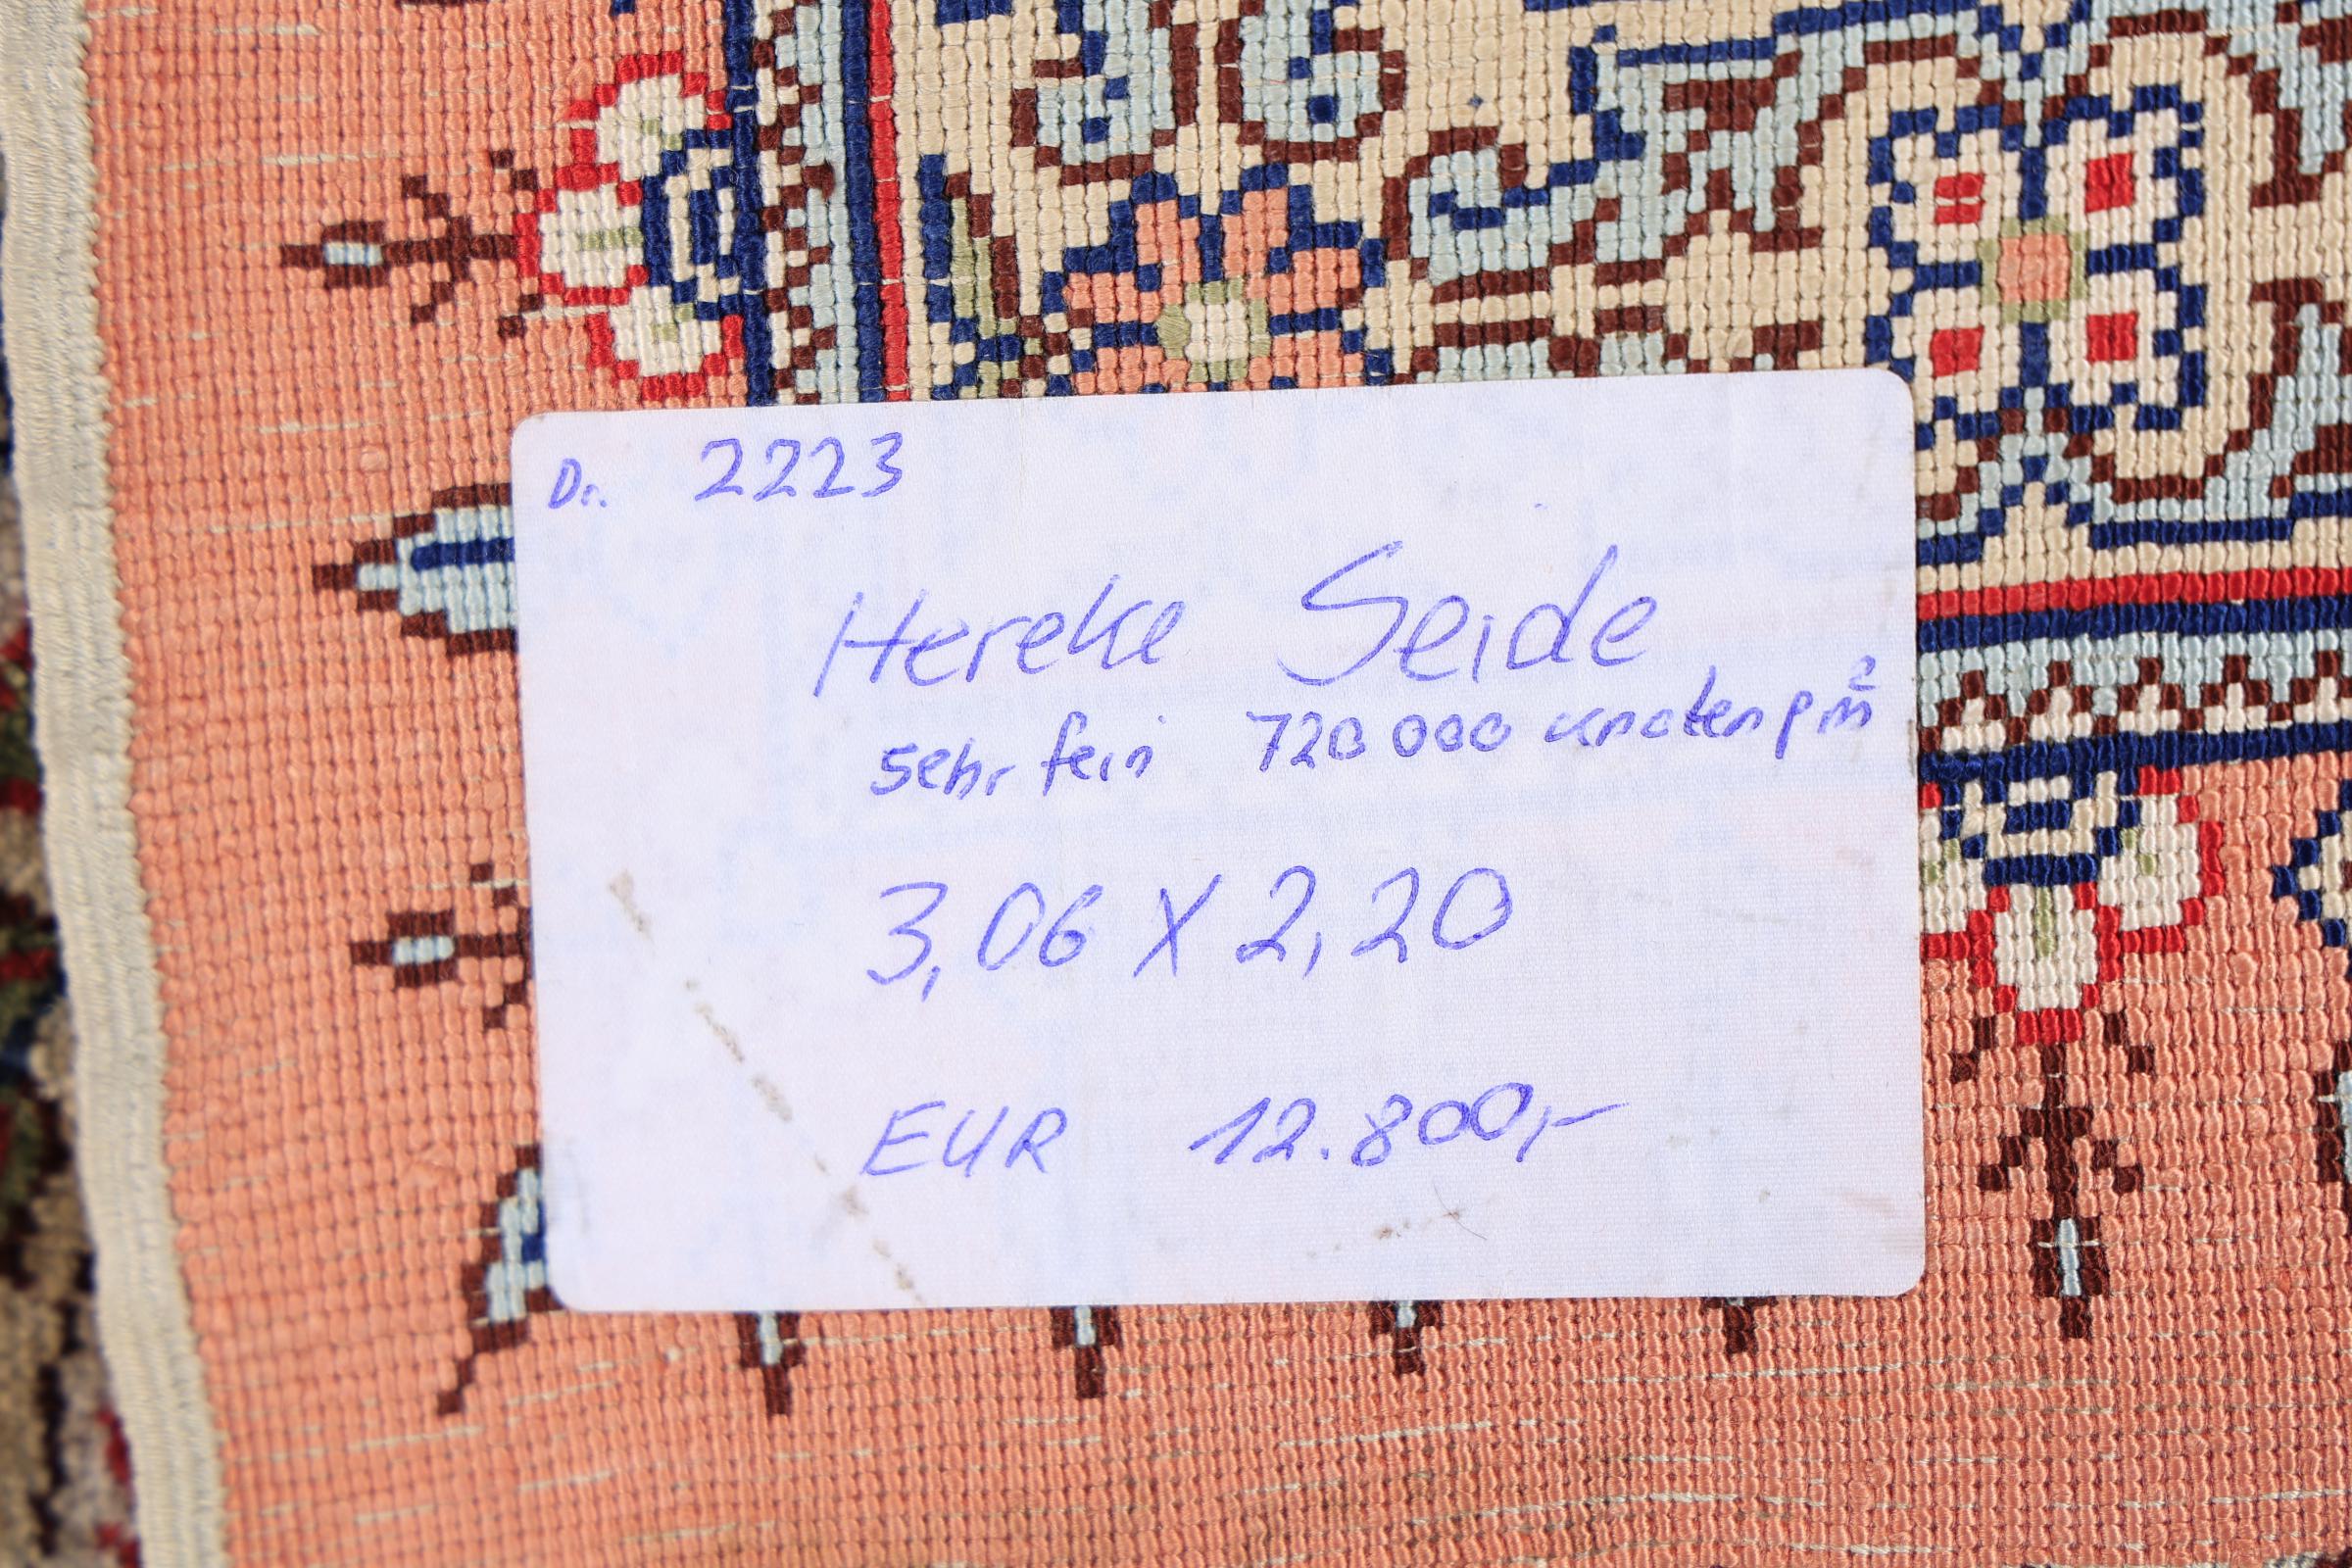 Dr. 2223
Hereke Seide
sehr fein 720 000 Knoten p m²
3,06 x 2,20
EUR 12.800,-